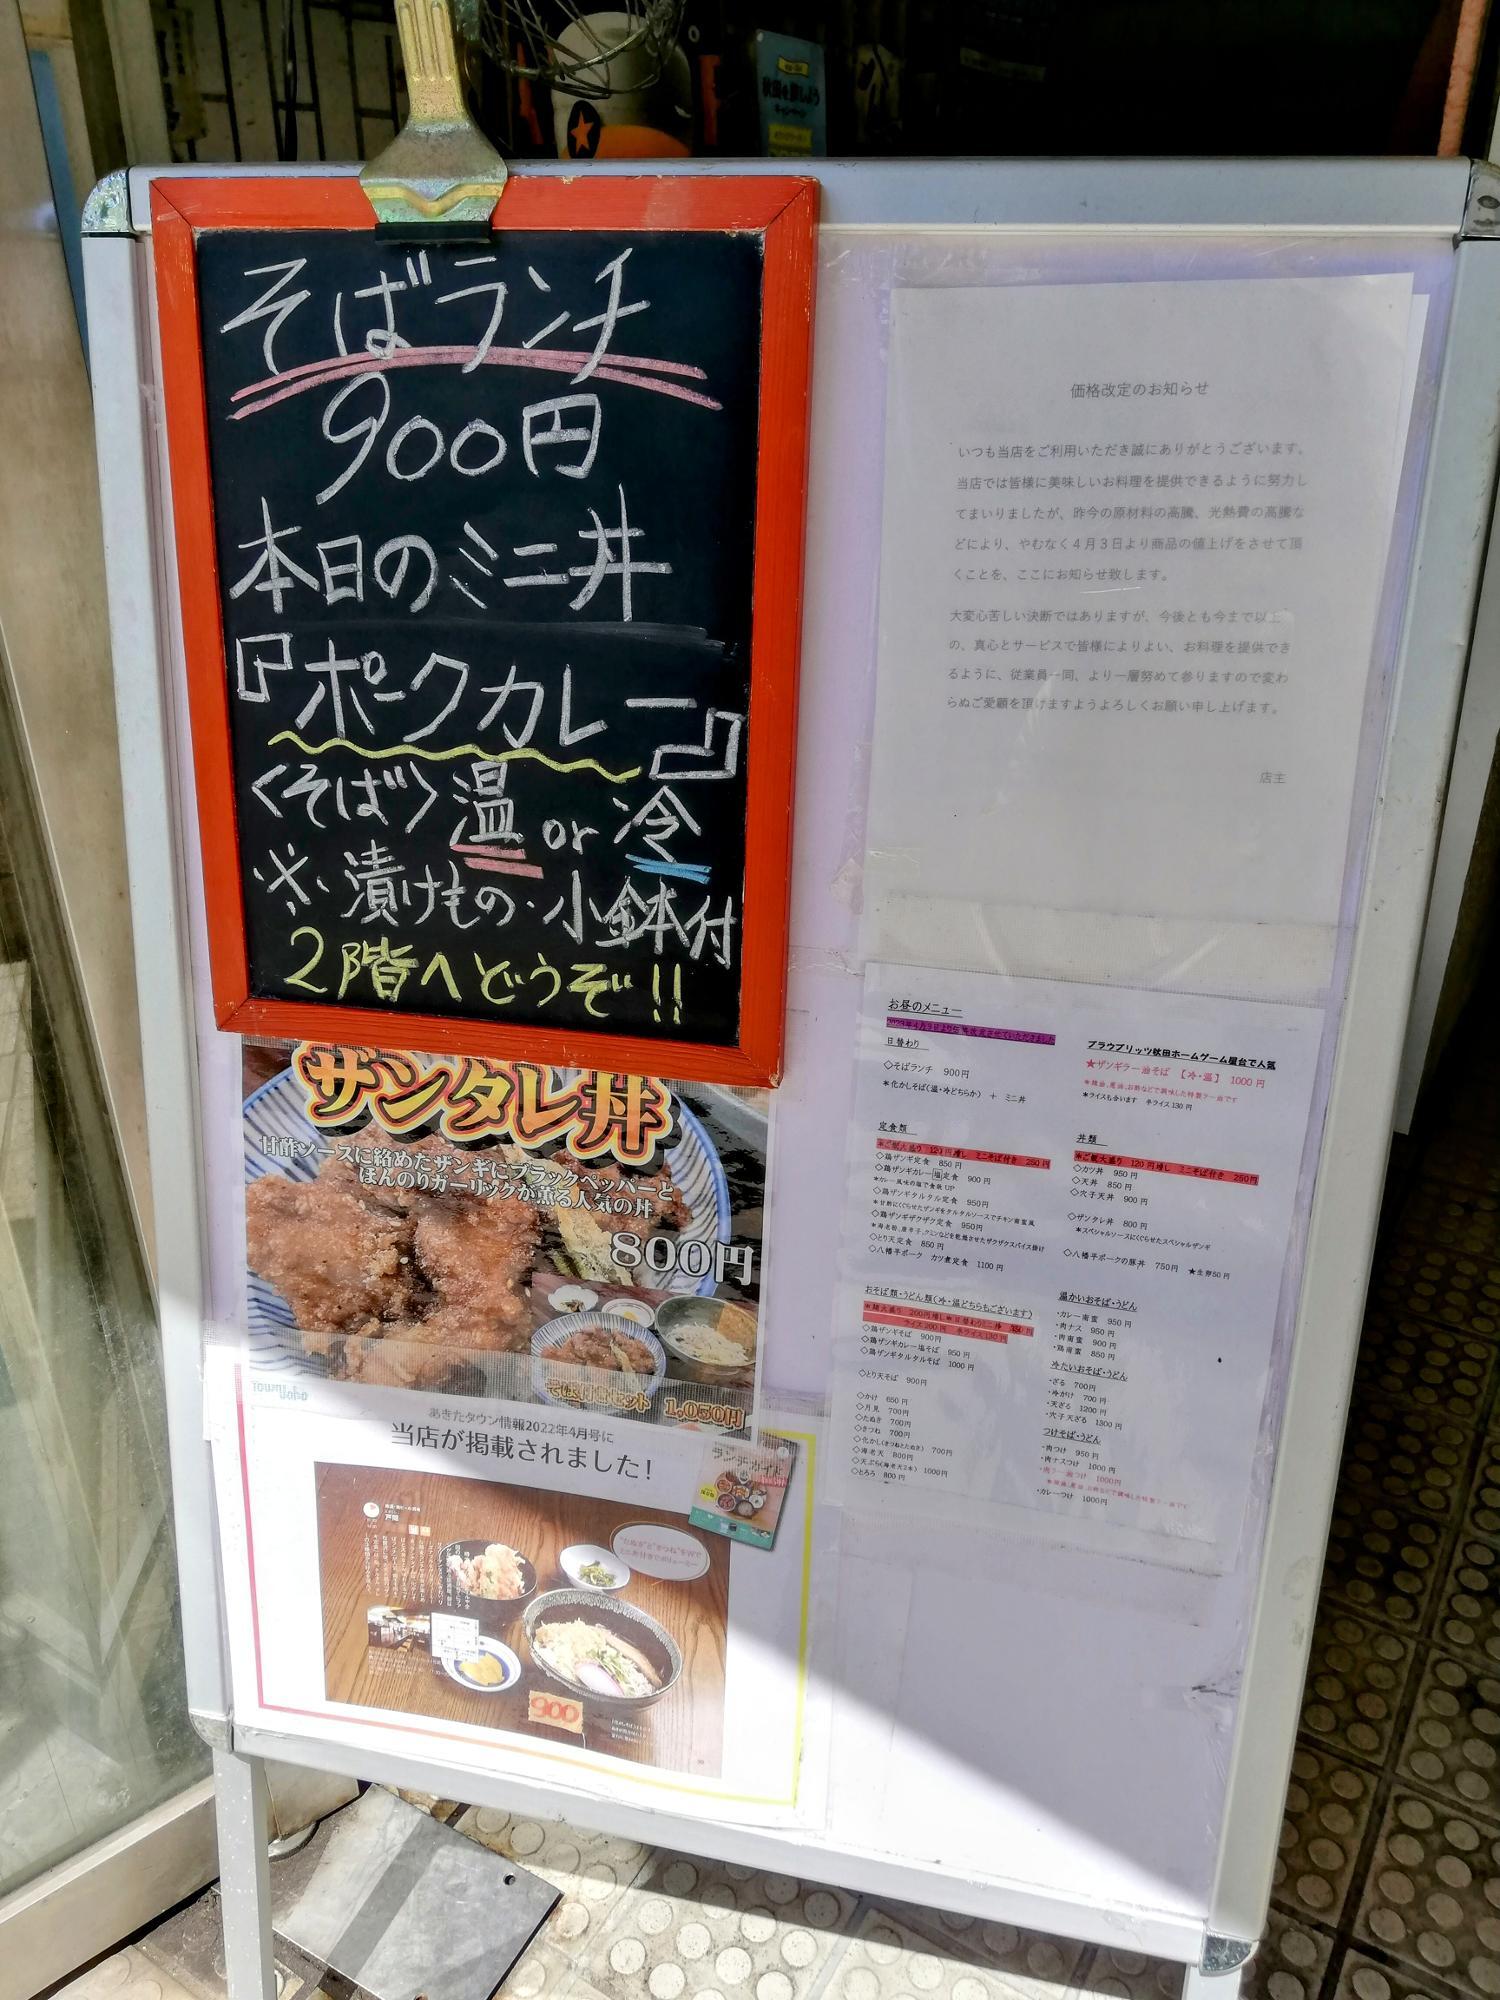 そばランチ
900円
本日のミニ丼
『ポークカレー』
〈そば〉温 or 冷
※漬けもの・小鉢付
2階へどうぞ!!
ザンタレ丼
甘酢ソースに絡めたザンギにブラックペッパーと
ほんのりガーリックが薫る人気の丼
800円
1,050円
あきたタウン情報2022年4月号に
当店が掲載されました!
"たぬき"と"きつね"をWで
ミニ丼付きでボリューミー
900
価格改定のお知らせ
いつも当店をご利用いただき誠にありがとうございます。
当店では皆様に美味しいお料理を提供できるように努力し
てまいりましたが、昨今の原材料の高騰、光熱費の高騰な
どにより、やむなく4月3日より商品の値上げをさせて頂
くことを、ここにお知らせ致します。
大変心苦しい決断ではありますが、今後とも今まで以上
の、真心とサービスで皆様によりよい、お料理を提供でき
るように、従業員一同、より一層努めて参りますので変わ
らぬご愛顧を頂けますようよろしくお願い申し上げます。
店主
お昼のメニュー
日替わり
◇そばランチ 900円
*化かしそば(温・冷どちらか) + ミニ丼
ブラウブリッツ秋田ホームゲーム屋台で人気
★ザンギラー油そば 【冷・温】 1000円
*ライスも合います 半ライス130円
定食類
*ご飯大盛り 120円増し ミニそば付き 250円
◇鶏ザンギ定食 850円
◇鶏ザンギカレー塩定食 900円
*カレー風味の塩で食欲UP
◇鶏ザンギタルタル定食 950円
*甘酢にくぐらせたザンギをタルタルソースでチキン南蛮風
◇鶏ザンギザクザク定食 950円
◇とり天定食 850円
◇八幡平ポーク カツ煮定食 1100円
丼類
*ご飯大盛り 120円増し ミニそば付き 250円
◇カツ丼 950円
◇天丼 850円
◇穴子天丼 900円
◇ザンタレ丼 800円
*スペシャルソースにくぐらせたスペシャルザンギ
◇八幡平ポークの豚丼 750円 ★生卵50円
おそば類・うどん類(冷・温どちらもございます)
◇鶏ザンギそば 900円
◇鶏ザンギカレー塩そば 950円
◇鶏ザンギタルタルそば 1000円
◇とり天そば 900円
◇かけ 650円
◇月見 700円
◇たぬき 700円
◇きつね 700円
◇化かし(きつねとたぬき) 700円
◇海老天 800円
◇天ぷら(海老天2本) 1000円
◇とろろ 800円
温かいおそば・うどん
・カレー南蛮 950円
・肉ナス 950円
・肉南蛮 900円
・鶏南蛮 850円
冷たいおそば・うどん
・ざる 700円
・冷がけ 700円
・天ざる 1200円
・穴子天ざる 1300円
つけそば・うどん
・肉つけ 950円
・肉ナスつけ 1000円
・肉ラー油つけ 1000円
・カレーつけ 1000円